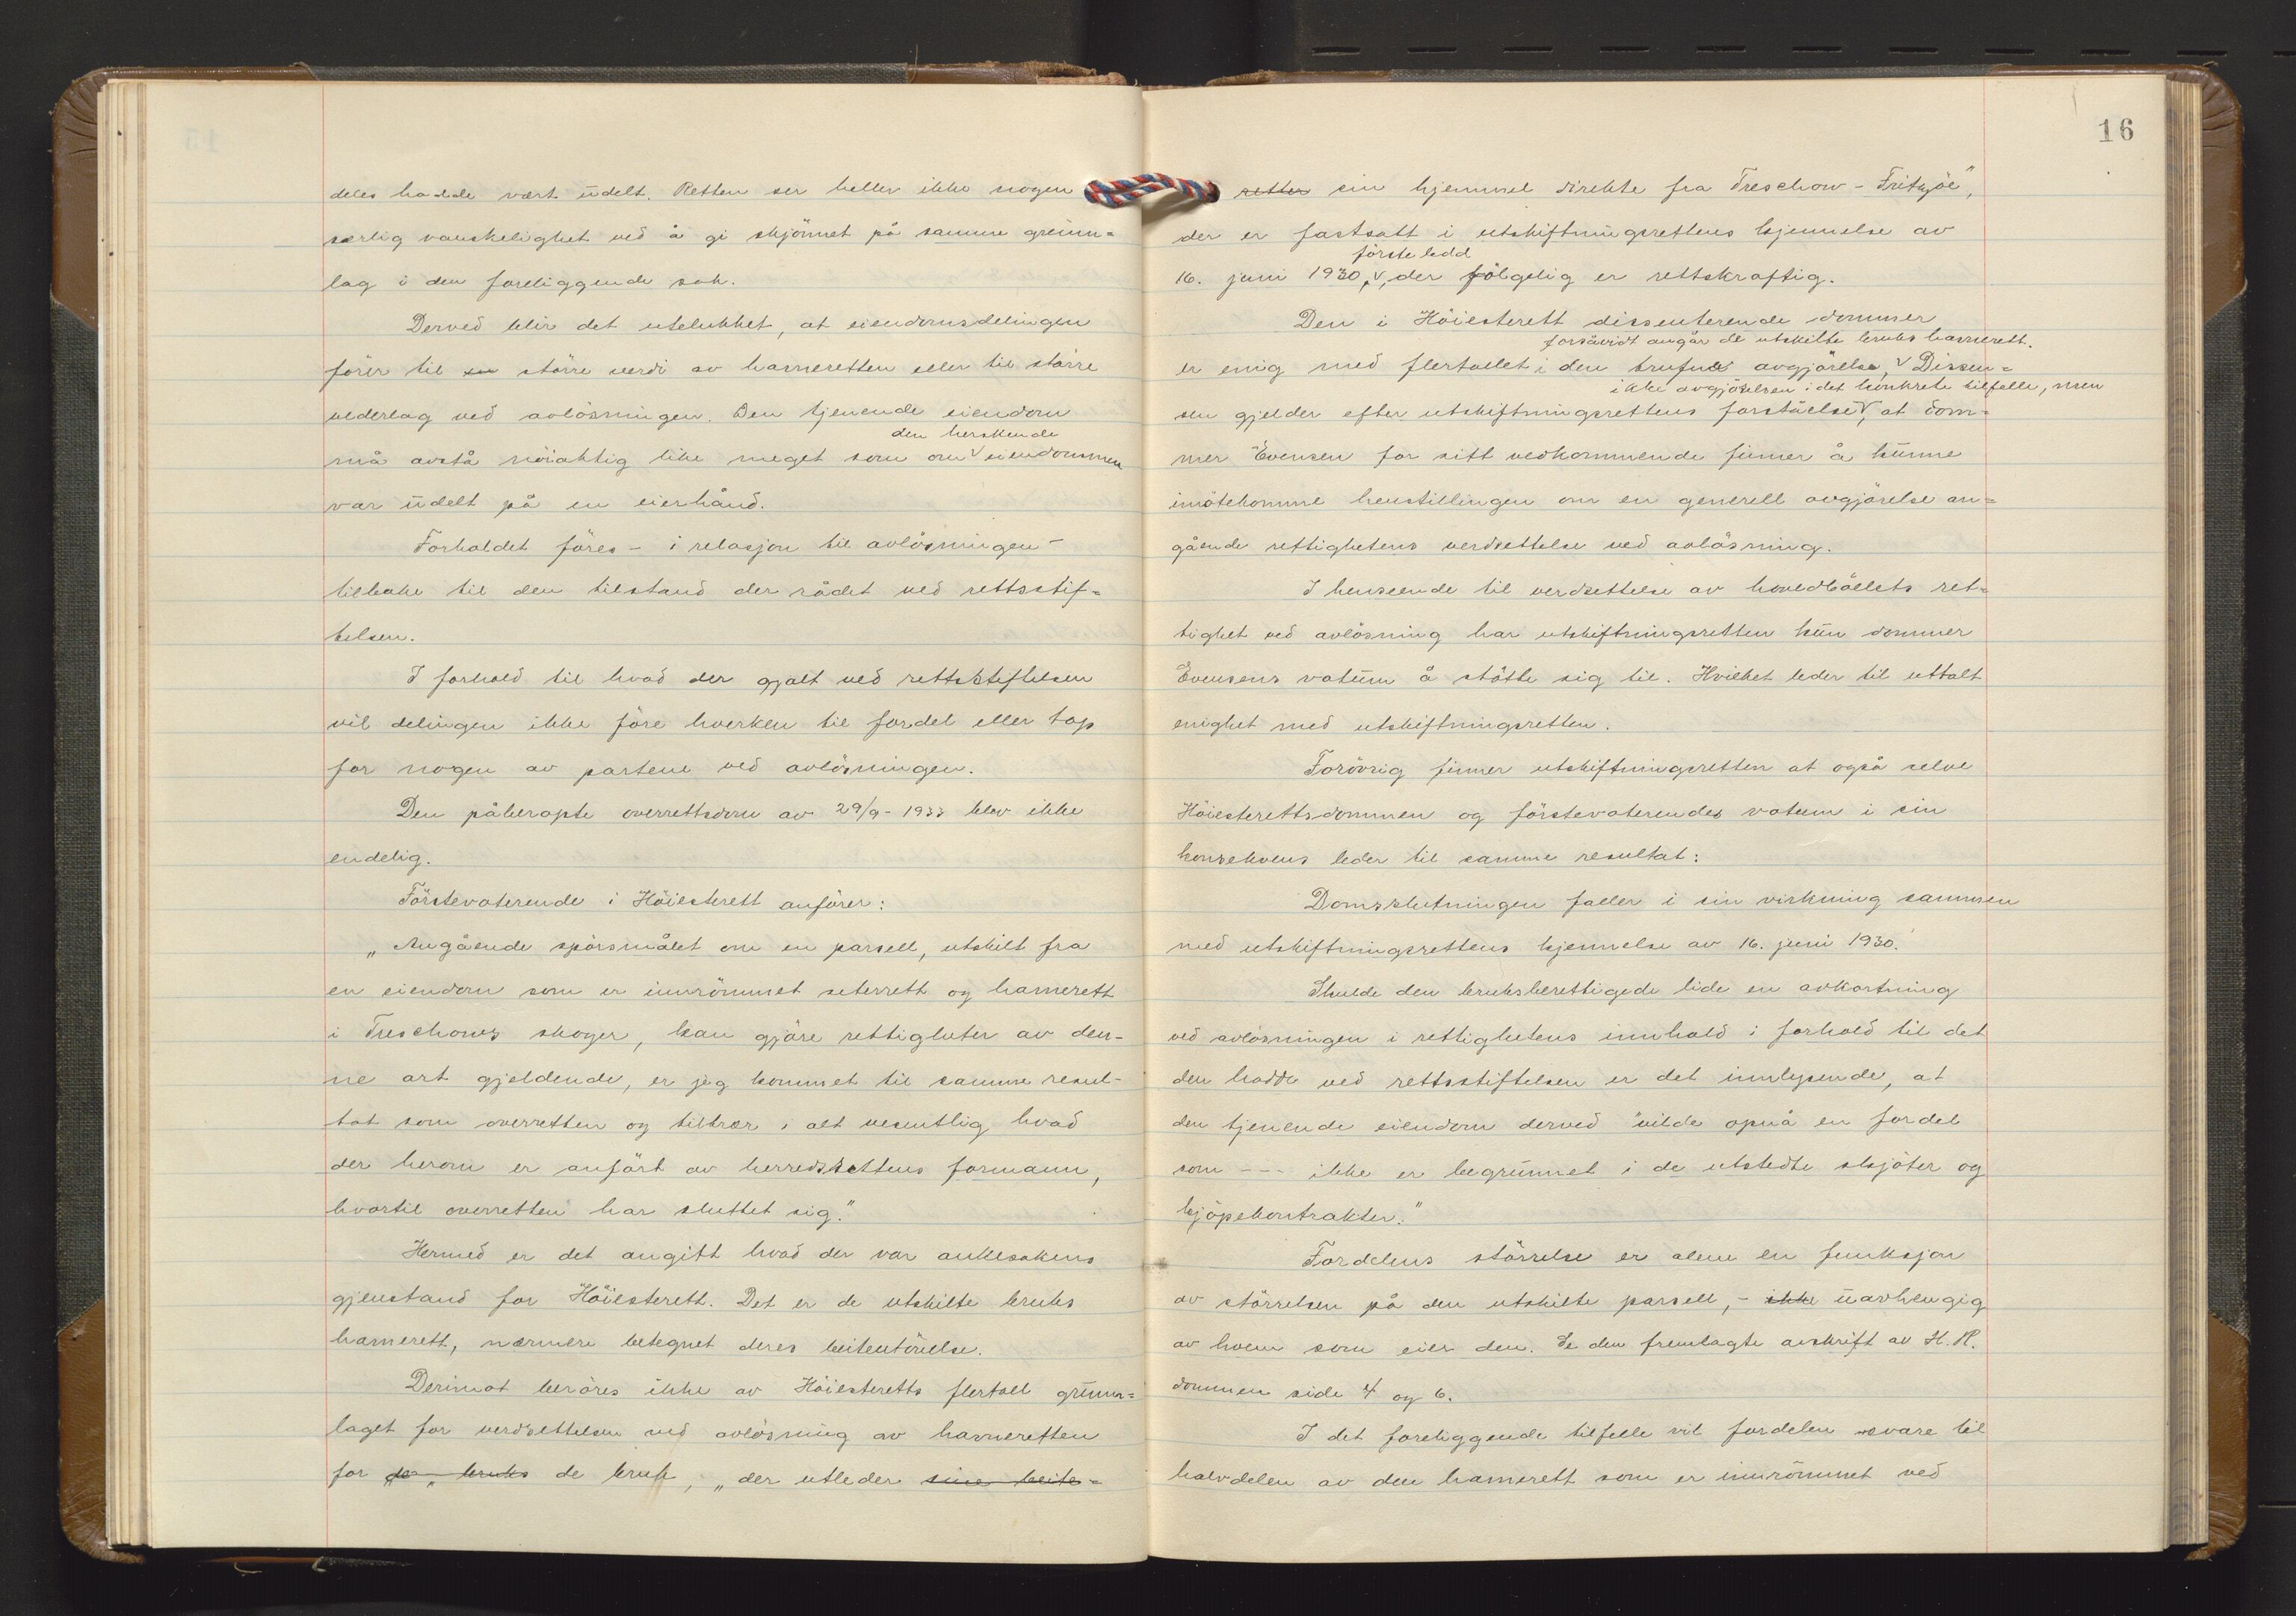 deles hadde vært udelt. Retten ser heller ikke nogen
særlig vanskelighet ved å gi skjönnet på samme grunn=
lag i den foreliggende sak.
Derved blir det utelukket, at eiendomsdelingen
förer til en större verdi av havneretten eller til större
vederlag ved avlösningen. Den tjenende eiendom
den herskende
må avstå nöiaktig like meget som om v eiendommen
var udelt på en eierhånd.
Forholdet föres - i relasjon til avlösningen -
tilbake til den tilstand der rådet ved rettsstif=
telsen.
I forhold til hvad der gjalt ved rettsstiftelsen
vil delingen ikke före hverken til fordel eller tap
for nogen av partene ved avlösningen.
Den påberopte overrettsdom av 29/9-1933 blev ikke
endelig.
Förstevoterende i Höiesterett anförer:
„Angående spörsmålet om en parsell, utskilt fra
en eiendom som er innrömmet seterrett og havnerett
i Treschows skoger, kan gjöre rettigheter av den-
ne art gjeldende, er jeg kommet til samme resul-
tat som overretten og tiltrær i alt vesentlig hvad
der herom er anfört av herredsrettens formann,
hvortil overretten har sluttet sig."
Hermed er det angitt hvad der var ankesakens
gjenstand for Höiesterett. Det er de utskilte bruks
havnerett, nærmere betegnet deres beiteutövelse.
Derimot beröres ikke av Höiesteretts flertall grunn=
laget for verdsettelsen ved avlösning av havneretten
for de „bruks de bruk, „der utleder sine beite=
16
retter sin hjemmel direkte fra Treschow-Fritzöe",
der er fastsatt i utskiftningsrettens kjennelse av
förste ledd
16. juni 1930, v, der fölgelig er rettskraftig.
Den i Höiesterett dissenterende dommer
forsåvidt angår de utskilte bruks havnerett.
er enig med flertallet i den trufne avgjörelse, v Dissen=
ikke avgjörelsen i det konkrete tilfelle, men
sen gjelder efter utskiftningsrettens forståelse v, at dom=
mer Evensen for sitt vedkommende finner å kunne
imötekomme henstillingen om en generell avgjörelse an=
gående rettighetens verdsettelse ved avlösning.
I henseende til verdsettelse av hovedbölets ret=
tighet ved avlösning har utskiftningsretten kun dommer
Evensens votum å stötte sig til. Hvilket leder til uttalt
enighet med utskiftningsretten.
Forövrig finner utskiftningsretten at også selve
Höiesterettsdommen og förstevoterendes votum i sin
konsekvens leder til samme resultat:
Domsslutningen faller i sin virkning sammen
med utskiftningsrettens kjennelse av 16. juni 1930.
Skulde den bruksberettigede lide en avkortning
ved avlösningen i rettighetens innhold i forhold til det
den hadde ved rettsstiftelsen er det innlysende, at
den tjenende eiendom derved "vilde opnå en fordel
som --- ikke er begrunnet i de utstedte skjöter og
kjöpekontrakter."
Fordelens störrelse er alene en funksjon
av störrelsen på den utskilte parsell, - ikke uavhengig
av hvem som eier den. Se den fremlagte avskrift av H.R.
dommen side 4 og 6.
I det foreliggende tilfelle vil fordelen svare til
halvdelen av den havnerett som er innrömmet ved